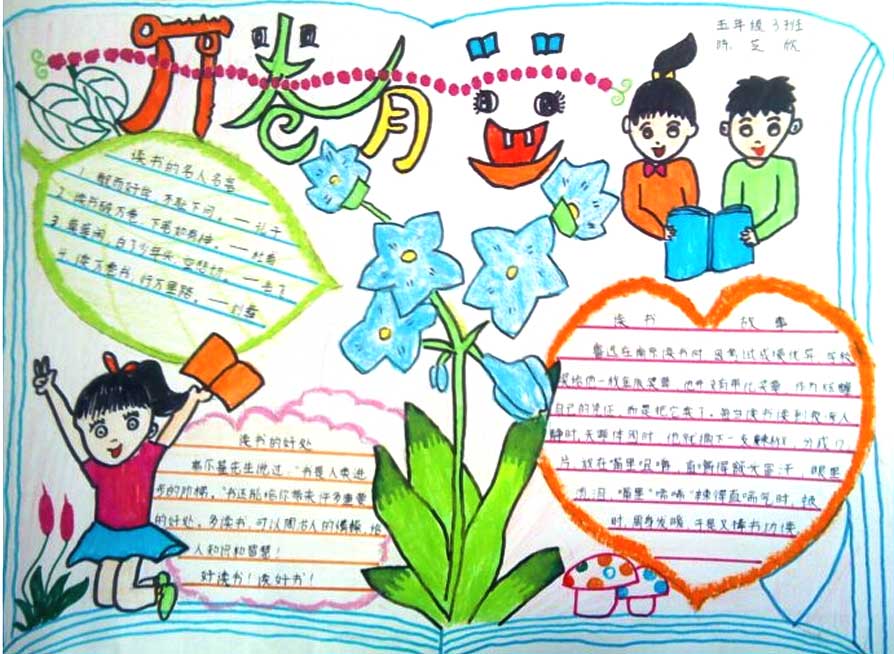 开卷有益
五年级3班
读书的名人名言
1. 敏而好学，不耻下问。——孔子
2. 读书破万卷，下笔如有神。——杜甫
3. 莫等闲，白了少年头，空悲切。——岳飞
4. 读万卷书，行万里路。——刘彝
读书的好处
高尔基先生说过："书是人类进
步的阶梯。"书还能给你带来许多重要
的好处。多读书，可以陶古人的情操，给
人知识和智慧！
好读书！读好书！
读书 故事
鲁迅在南京读书时，因考试成绩优异，学校
奖给他一枚金质奖章。他并没有带此奖章，作为炫耀
自己的凭证，而是把它卖了。每当读书读到夜深人
静时，天寒体困时，他就摘下一支辣椒，分成几
片，放在嘴里咀嚼，直嚼得额头冒汗，眼里
流泪，嘴里"唏唏"辣得直喘气时，顿
时，周身发暖，于是又捧书功读